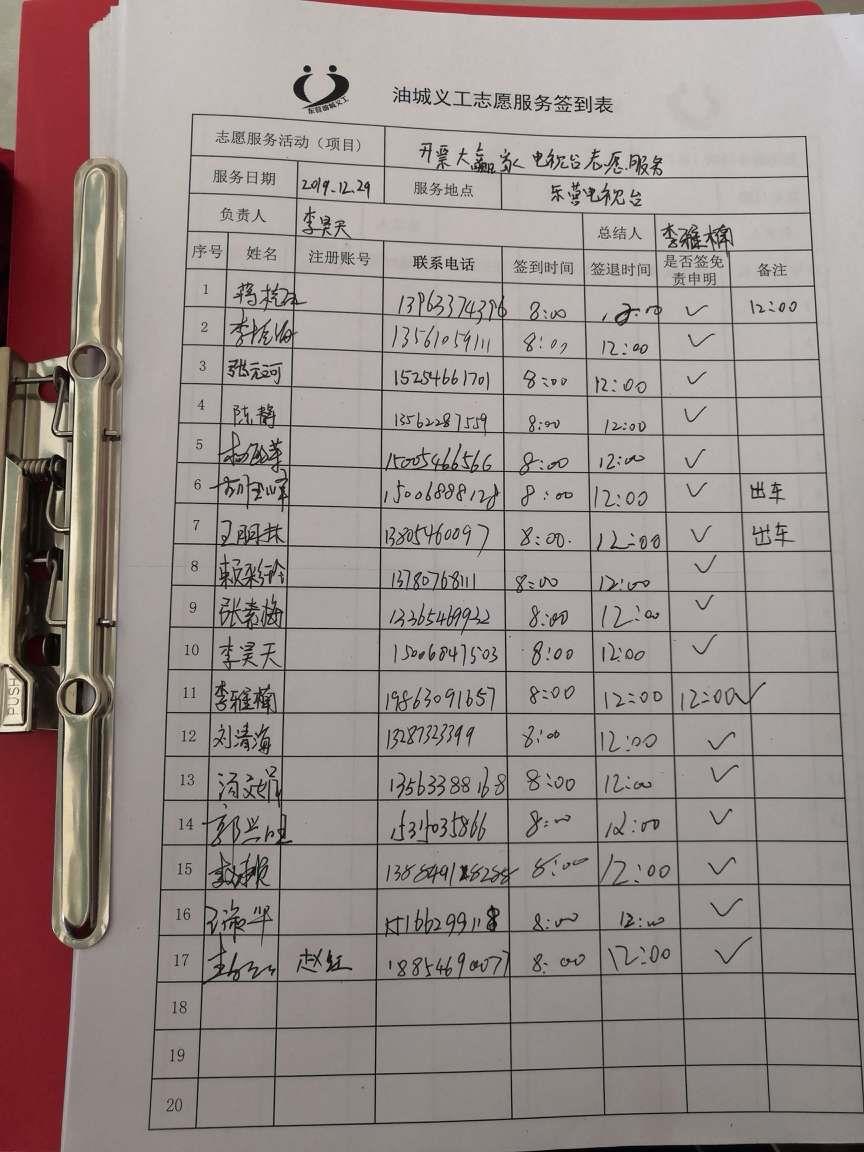 东营油城义工
油城义工志愿服务签到表
志愿服务活动（项目） 开票大赢家 电视台志愿服务
服务日期 2019.12.29 服务地点 东营电视台
负责人 李昊天 总结人 李雅楠
序号 姓名 注册账号 联系电话 签到时间 签退时间 是否签免责申明 备注
1 13963374396 8:00 ✓ 12:00
2 13561059111 8:00 12:00 ✓
3 15254661701 8:00 12:00 ✓
4 陈静 13562287559 8:00 12:00 ✓
5 15005466566 8:00 12:00 ✓
6 15006888128 8:00 12:00 ✓ 出车
7 13805460097 8:00. 12:00 ✓ 出车
8 赖彩玲 13780768111 8:00 12:00 ✓
9 张素梅 13365469932 8:00 12:00 ✓
10 李昊天 15006847503 8:00 12:00 ✓
11 李雅楠 19863091657 8:00 12:00 12:00✓
12 刘清海 13287323399 8:00 12:00 ✓
13 13563388168 8:00 12:00 ✓
14 15315035866 8:00 12:00 ✓
15 8:00 12:00 ✓
16 8:00 12:00 ✓
17 赵红 18854690077 8:00 12:00 ✓
18
19
20
PUSH